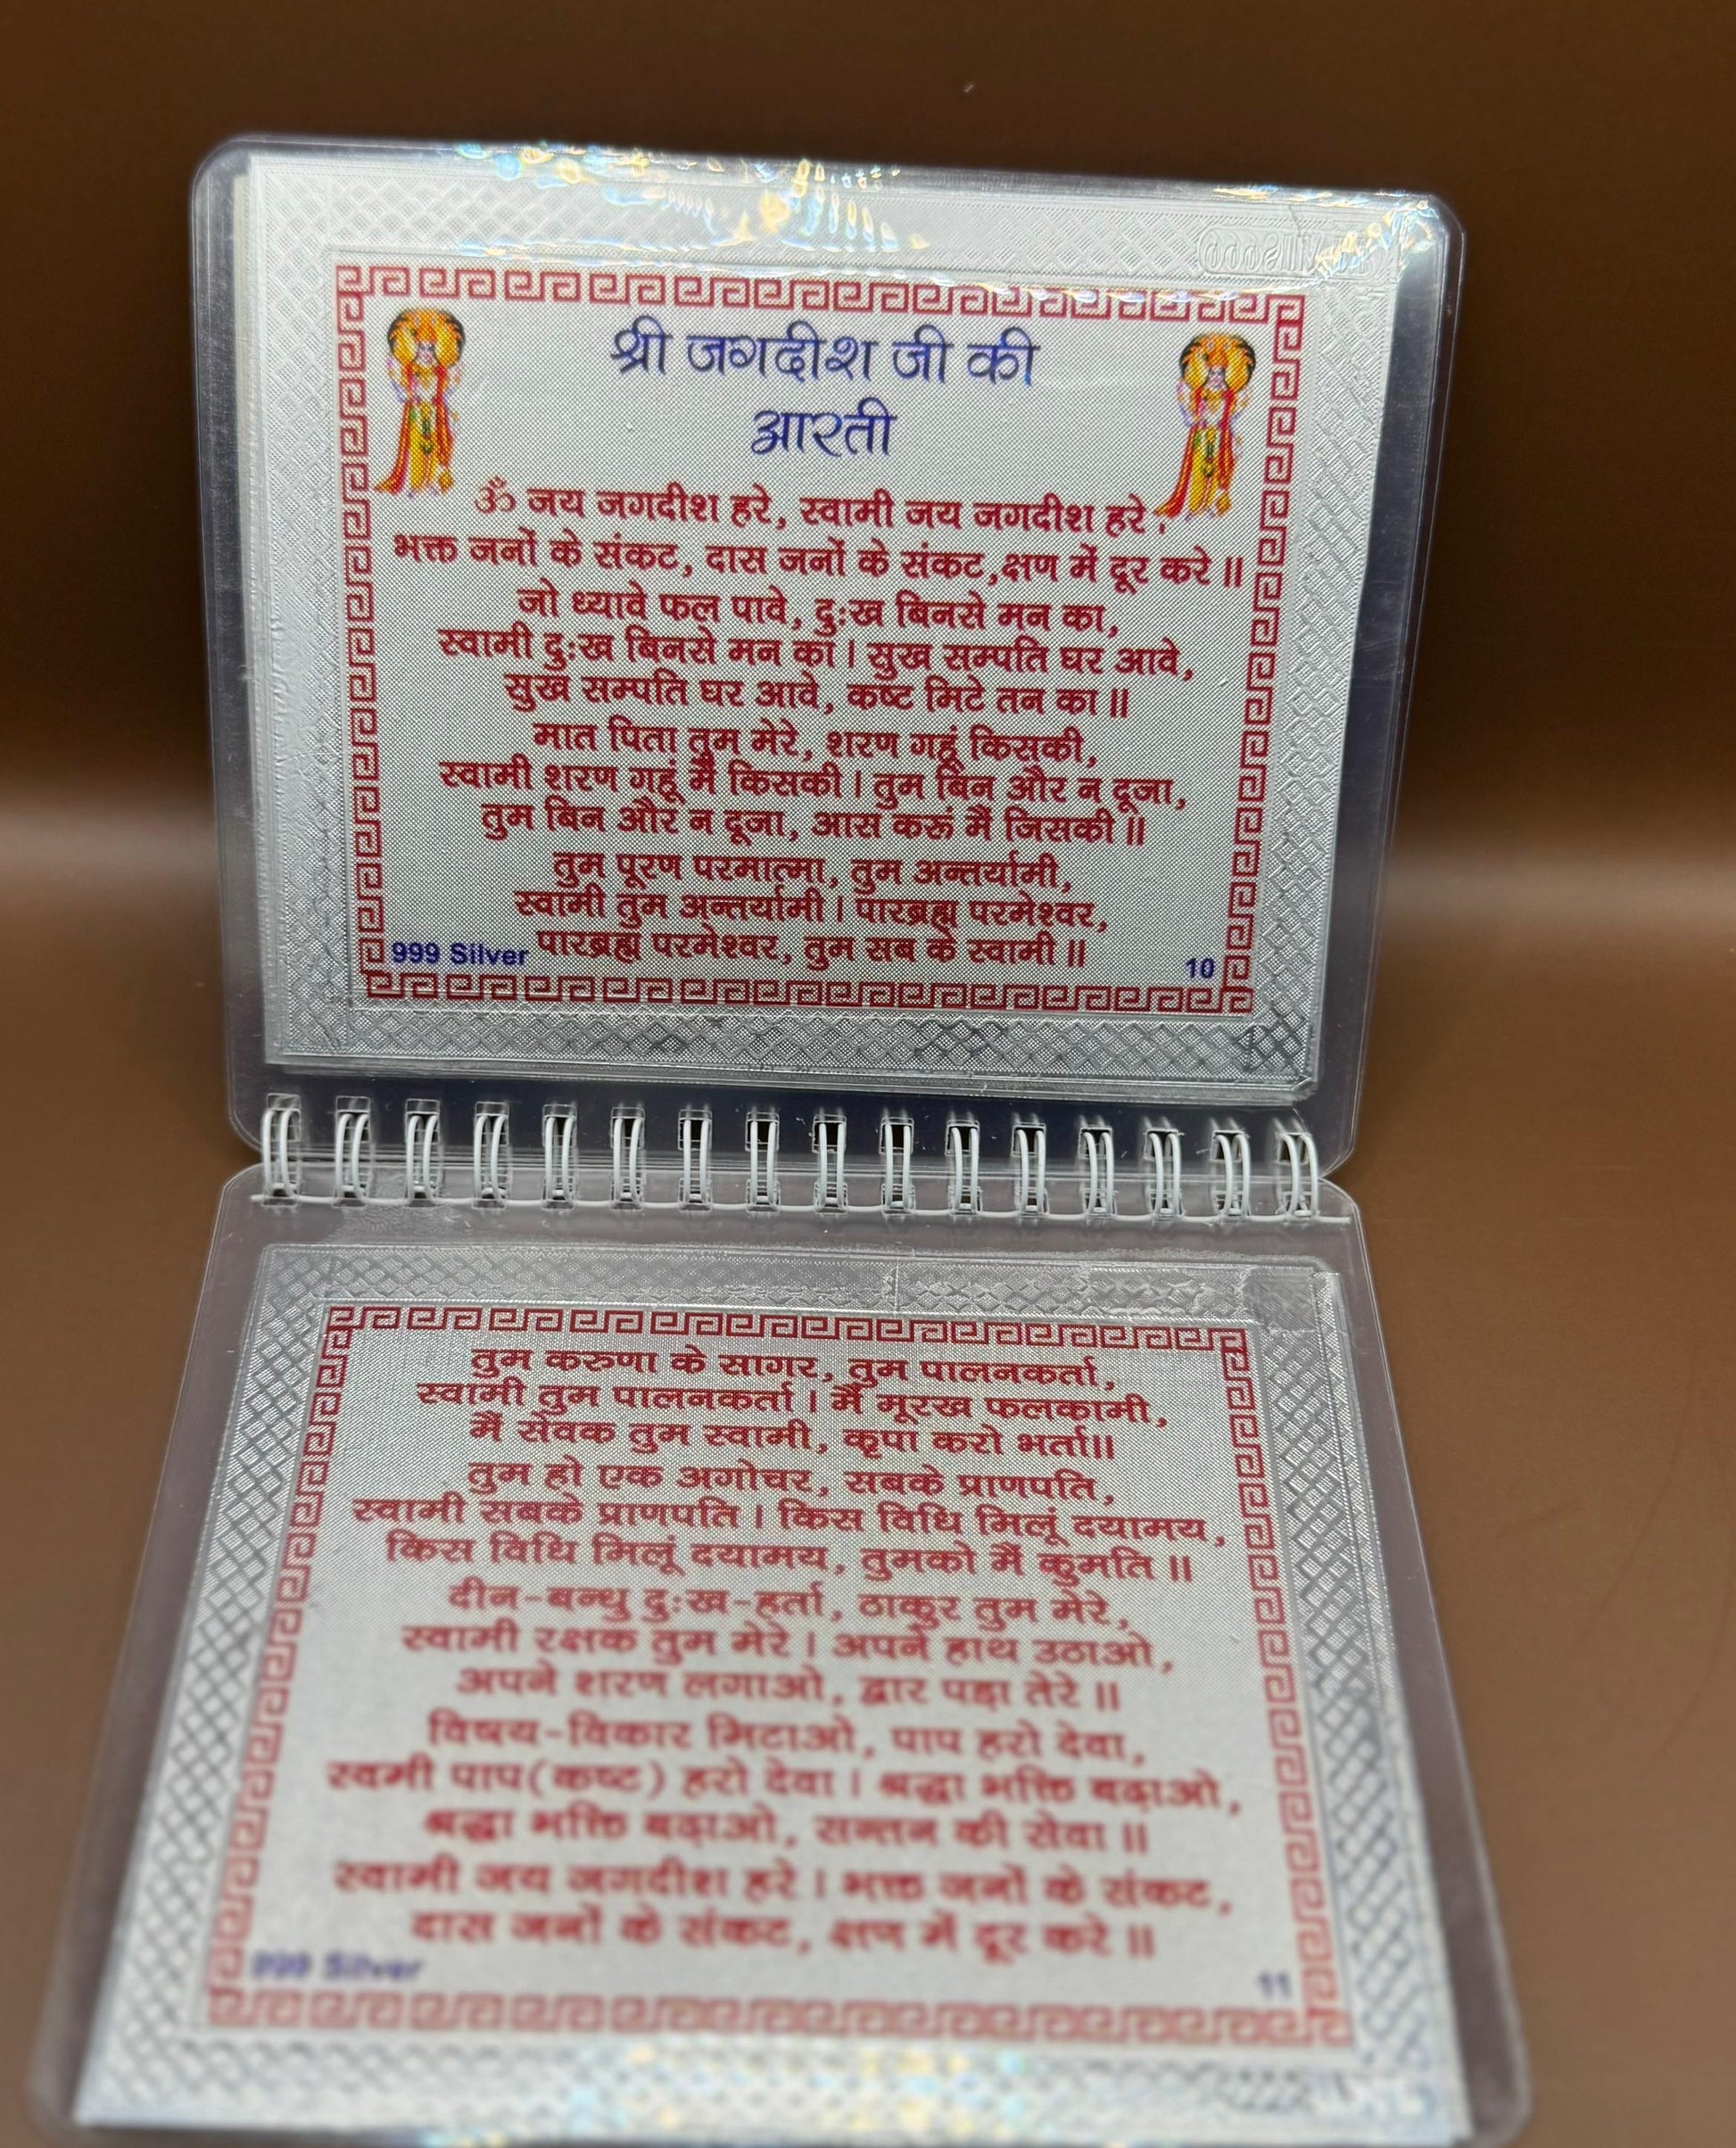 श्री जगदीश जी की
आरती
ॐ जय जगदीश हरे, स्वामी जय जगदीश हरे .
भक्त जनों के संकट, दास जनों के संकट,क्षण में दूर करे ॥
जो ध्यावे फल पावे, दुःख बिनसे मन का,
स्वामी दुःख बिनसे मन का । सुख सम्पति घर आवे,
सुख सम्पति घर आवे, कष्ट मिटे तन का ॥
मात पिता तुम मेरे, शरण गहूं किसकी,
स्वामी शरण गहूं मैं किसकी । तुम बिन और न दूजा,
तुम बिन और न दूजा, आस करूं मैं जिसकी ॥
तुम पूरण परमात्मा, तुम अन्तर्यामी,
स्वामी तुम अन्तर्यामी । पारब्रह्म परमेश्वर,
पारब्रह्म परमेश्वर, तुम सब के स्वामी ॥
999 Silver
10
तुम करुणा के सागर, तुम पालनकर्ता,
स्वामी तुम पालनकर्ता । मैं मूरख फलकामी,
मैं सेवक तुम स्वामी, कृपा करो भर्ता॥
तुम हो एक अगोचर, सबके प्राणपति,
स्वामी सबके प्राणपति । किस विधि मिलूं दयामय,
किस विधि मिलूं दयामय, तुमको मैं कुमति ॥
दीन-बन्धु दुःख-हर्ता, ठाकुर तुम मेरे,
स्वामी रक्षक तुम मेरे । अपने हाथ उठाओ,
अपने शरण लगाओ, द्वार पड़ा तेरे ॥
विषय-विकार मिटाओ, पाप हरो देवा,
स्वमी पाप(कष्ट) हरो देवा । श्रद्धा भक्ति बढ़ाओ,
श्रद्धा भक्ति बढ़ाओ, सन्तन की सेवा ॥
स्वामी जय जगदीश हरे । भक्त जनों के संकट,
दास जनों के संकट, क्षण में दूर करे ॥
999 Silver
11